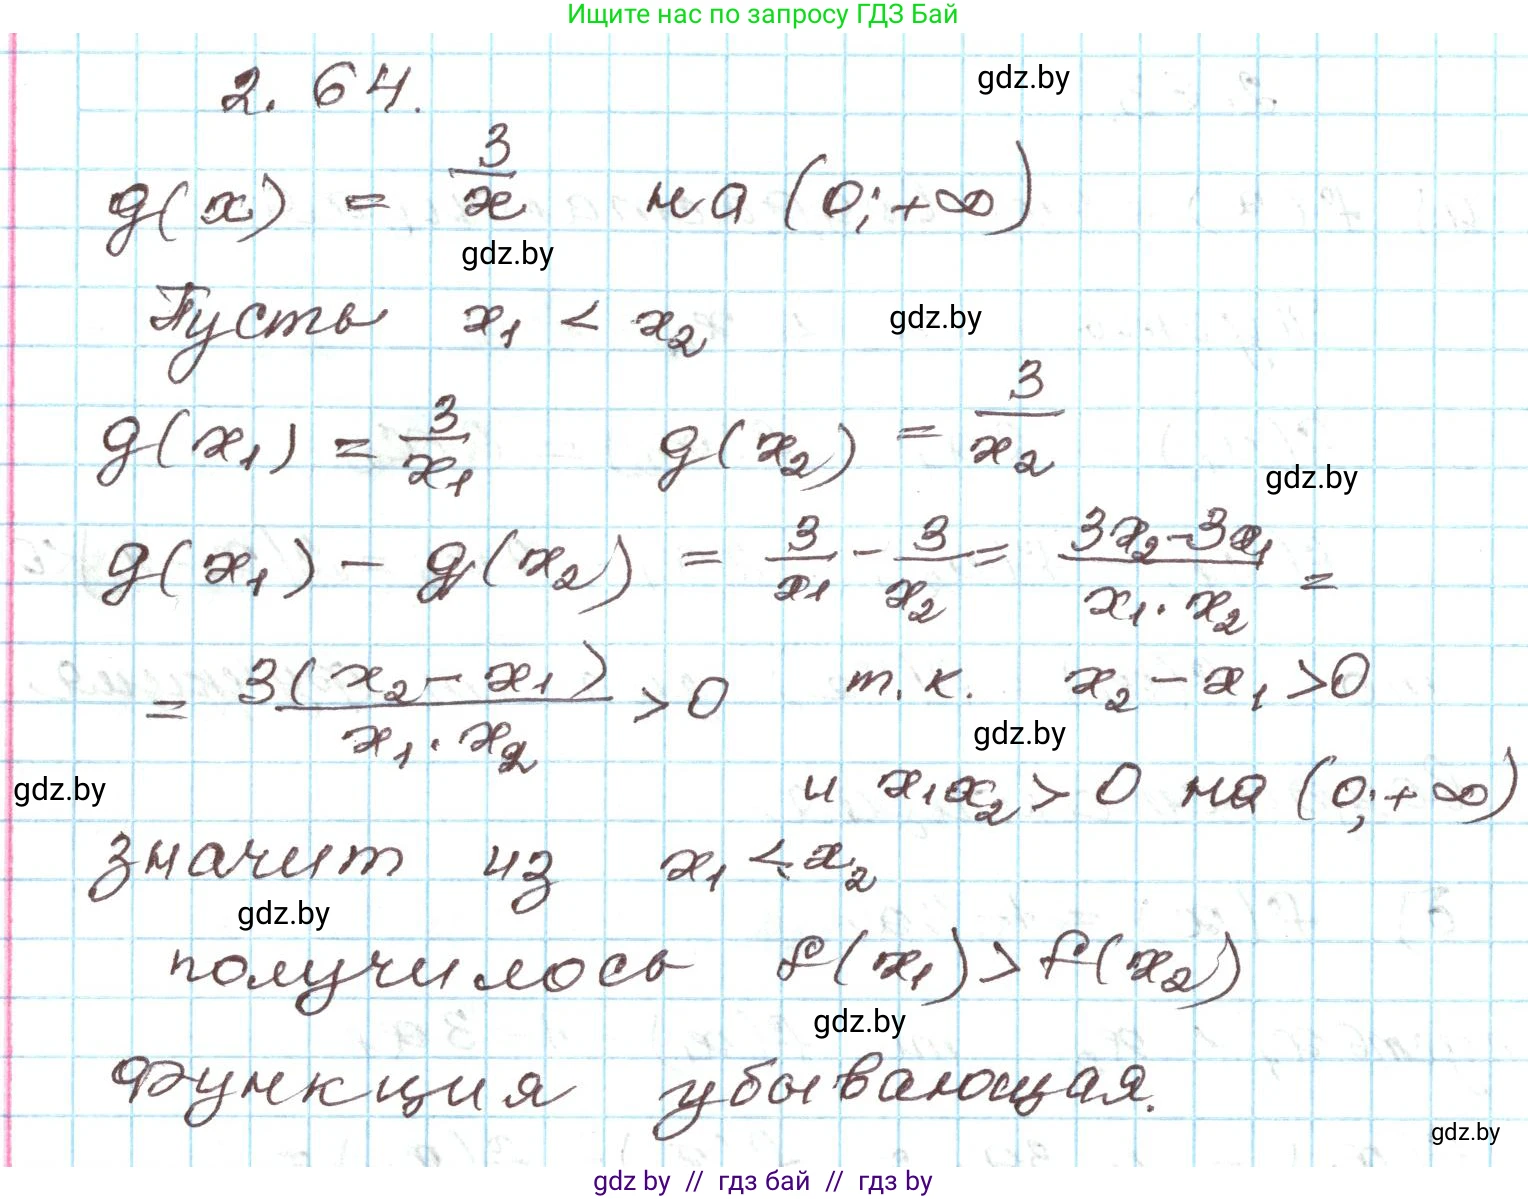 Ищите нас по запросу ГДЗ Бай
2.64.
gdz.by
g(x) = 3/x на (0; +∞)
gdz.by
Пусть x₁ < x₂
gdz.by
g(x₁) = 3/x₁ g(x₂) = 3/x₂
gdz.by
g(x₁) - g(x₂) = 3/x₁ - 3/x₂ = (3x₂-3x₁)/(x₁·x₂) =
= 3(x₂-x₁)/(x₁·x₂) > 0 т.к. x₂-x₁>0
gdz.by
gdz.by
и x₁x₂ > 0 на (0; +∞)
значит из x₁ < x₂
gdz.by
получилось f(x₁) > f(x₂)
gdz.by
Функция убывающая.
gdz.by
gdz by // гдз бай // гдз by